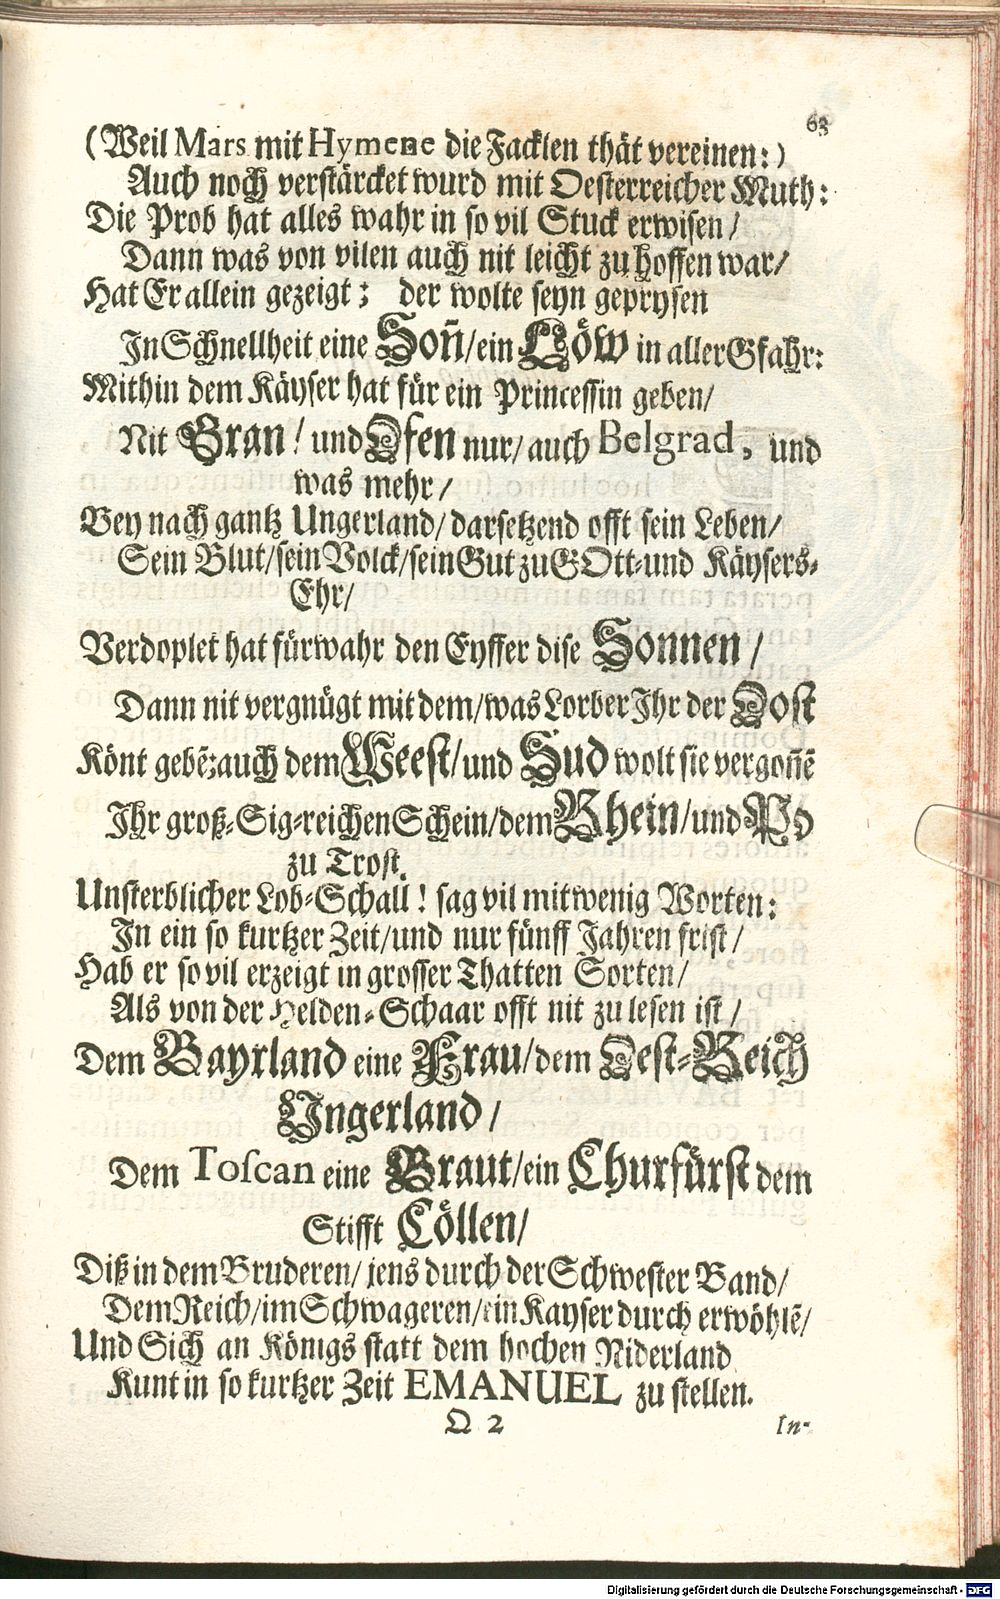 63
(Weil Mars mit Hymene die Facklen thät vereinen:)
Auch noch verstärcket wurd mit Oesterreicher Muth:
Die Prob hat alles wahr in so vil Stuck erwisen/
Dann was von vilen auch nit leicht zu hoffen war/
Hat Er allein gezeigt; der wolte seyn geprysen
In Schnellheit eine Soñ/ein Löw in aller Gfahr:
Mithin dem Käyser hat für ein Princessin geben/
Nit Gran/ und Ofen nur/ auch Belgrad, und
was mehr/
Bey nach gantz Ungerland/darsetzend offt sein Leben/
Sein Blut/sein Volck/sein Gut zu GOtt-und Käysers-
Ehr/
Verdoplet hat fürwahr den Eyffer dise Sonnen/
Dann nit vergnügt mit dem/was Lorber Ihr der Oost
Könt gebẽ;auch dem Weest/und Sud wolt sie vergoñẽ
Ihr groß-Sig-reichen Schein/dem Rhein/und Po
zu Trost.
Unsterblicher Lob-Schall! sag vil mit wenig Worten:
In ein so kurtzer Zeit/und nur fünff Jahren frist/
Hab er so vil erzeigt in grosser Thatten Sorten/
Als von der Helden-Schaar offt nit zu lesen ist/
Dem Bayrland eine Frau/dem Oest-Reich
Ungerland/
Dem Toscan eine Braut/ein Churfürst dem
Stifft Cöllen/
Diß in dem Bruderen/jens durch der Schwester Band/
Dem Reich/im Schwageren/ein Kayser durch erwöhlẽ/
Und Sich an Königs statt dem hochen Niderland
Kunt in so kurtzer Zeit EMANUEL zu stellen.
Q 2
In-
Digitalisierung gefördert durch die Deutsche Forschungsgemeinschaft - DFG